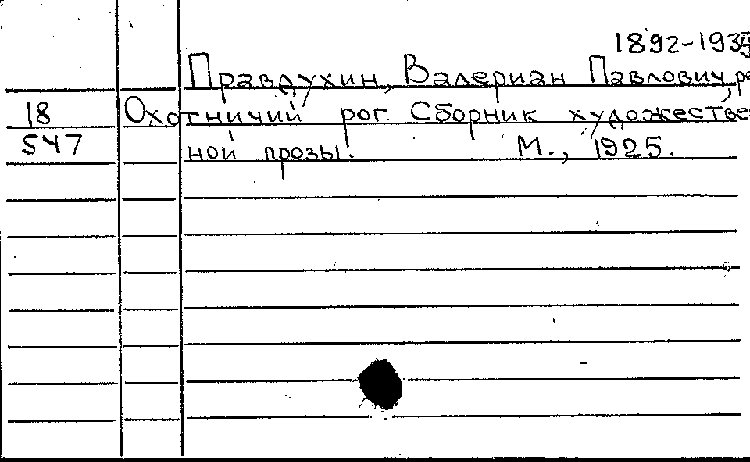 1892-1939
Правдухин, Валериан Павлович, ре
18 Охотничий рог. Сборник художестве
547 ной прозы. М., 1925.